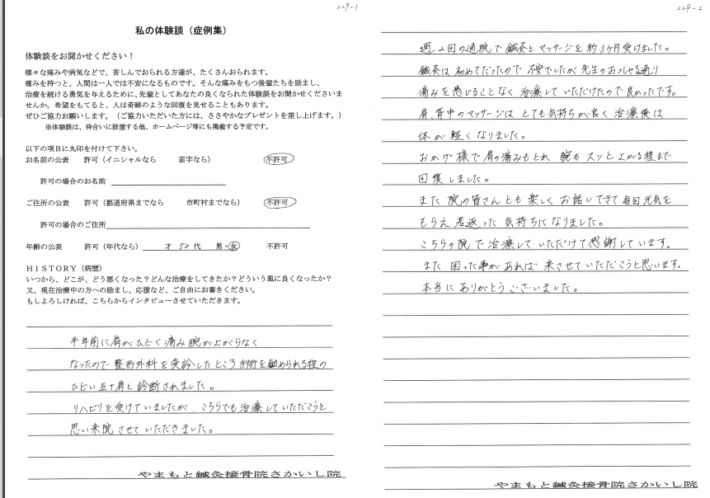 229-1
私の体験談（症例集）
体験談をお聞かせください！
様々な痛みや病気などで、苦しんでおられる方達が、たくさんおられます。
痛みを持つと、人間は一人では不安になるものです。そんな痛みをもつ後輩たちを励まし、
治療を続ける勇気を与えるために、先輩としてあなたの良くなられた体験談をお聞かせくださいま
せんか。希望をもてると、人は奇跡のような回復を見せることもあります。
ぜひご協力お願いします。（ご協力いただいた方には、ささやかなプレゼントを差し上げます。）
※体験談は、待合いに設置する他、ホームページ等にも掲載する予定です。
以下の項目に丸印を付けて下さい。
お名前の公表 許可（イニシャルなら 苗字なら） 不許可
許可の場合のお名前
ご住所の公表 許可（都道府県までなら 市町村までなら） 不許可
許可の場合のご住所
年齢の公表 許可（年代なら） 才 50代 男・女 不許可
ＨＩＳＴＯＲＹ（病歴）
いつから、どこが、どう悪くなった？どんな治療をしてきたか？どういう風に良くなったか？
又、現在治療中の方への励まし、応援など、ご自由にお書きください。
もしよろしければ、こちらからインタビューさせていただきます。
半年前に肩がひどく痛み腕が上がらなく
なったので整形外科を受診したところ手術を勧められる程の
ひどい五十肩と診断されました。
リハビリを受けていましたが こちらでも治療していただこうと
思い来院させていただきました。
やまもと鍼灸接骨院さかいし院
229-2
週2回の通院で鍼灸とマッサージを約3ヶ月受けました。
鍼灸は初めてだったので不安でしたが先生のおっしゃる通り
痛みを感じることなく治療していただけたので良かったです。
肩、背中のマッサージはとても気持ちが良く治療後は
体が軽くなりました。
おかげ様で肩の痛みもとれ 腕もスッと上がる程まで
回復しました。
また院の皆さんとも楽しくお話しできて毎回元気を
もらえ若返った気持ちになりました。
こちらの院で治療していただけて感謝しています。
また困った事があれば来させていただこうと思います。
本当にありがとうございました。
やまもと鍼灸接骨院さかいし院